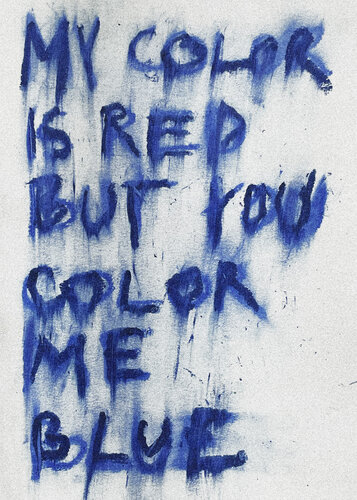 MY COLOR
IS RED
BUT YOU
COLOR
ME
BLUE